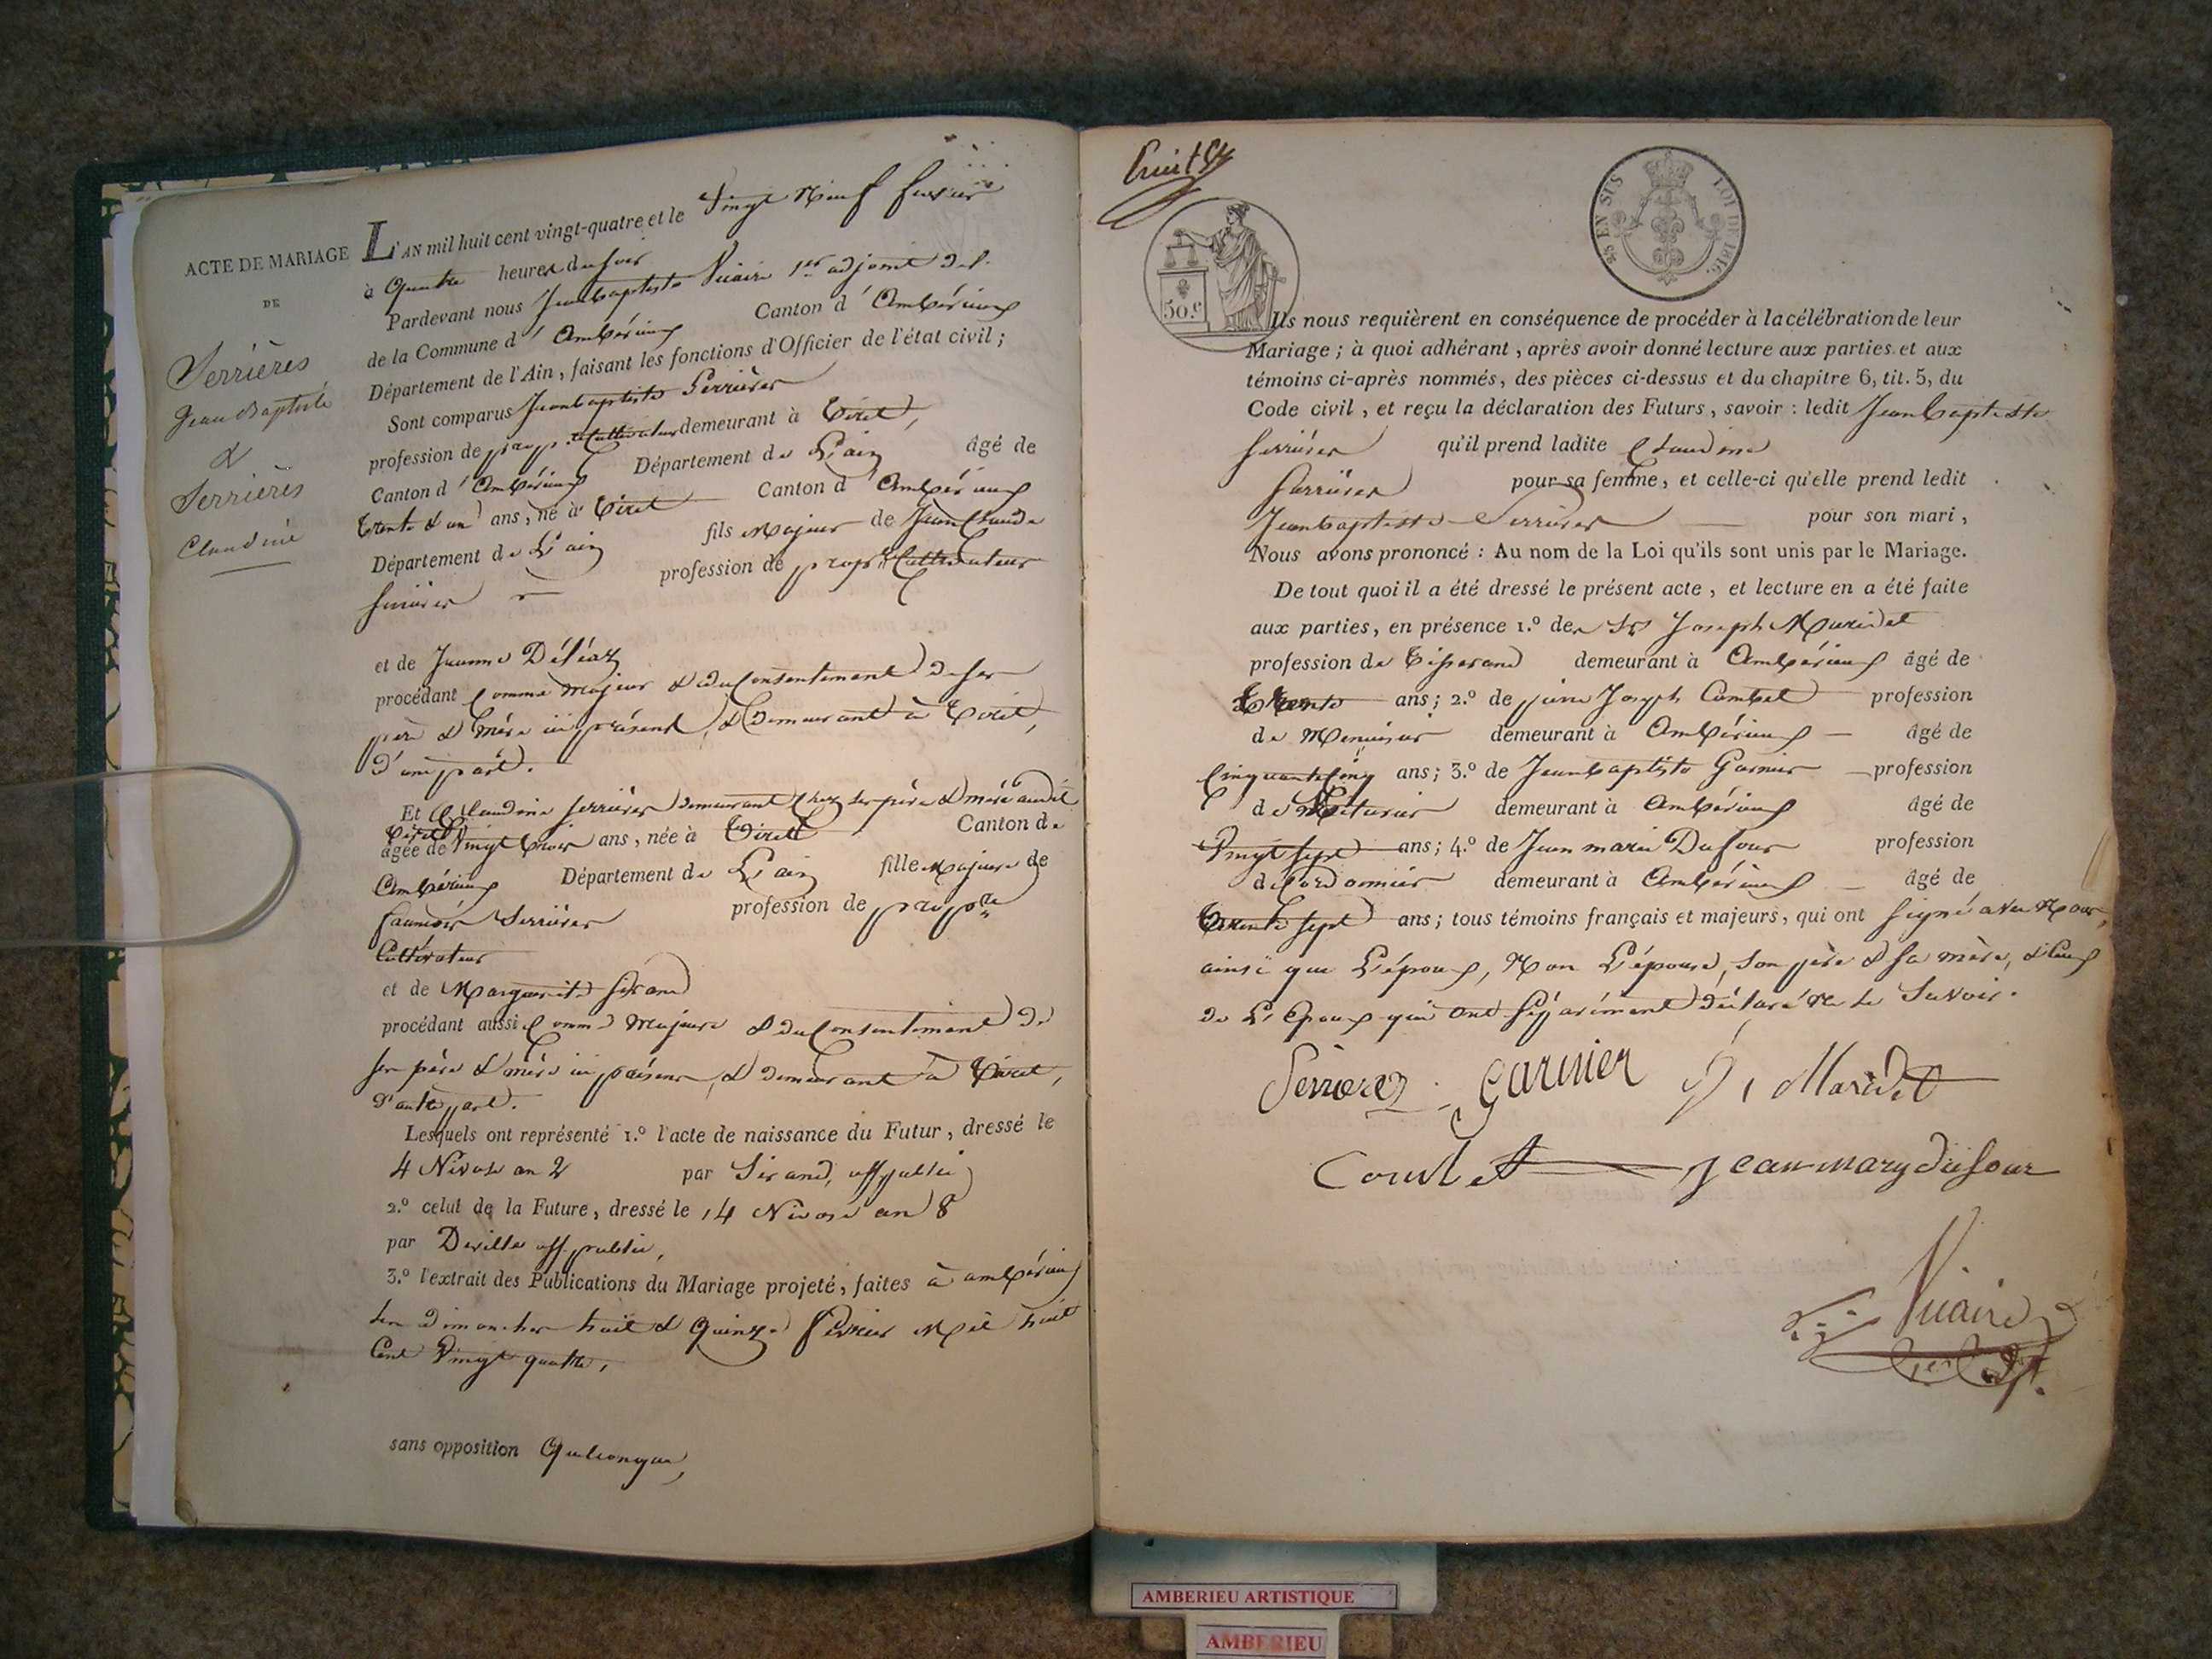 ACTE DE MARIAGE
DE
Serrières
Jean Baptiste
&
Serrières
Claudine
L'AN mil huit cent vingt-quatre et le Vingt Neuf fevrier
à Quatre heures du soir
Pardevant nous Jeanbaptiste Vicaire 1er adjoint de l'
de la Commune d'Ambérieux Canton d'Ambérieux
Département de l'Ain, faisant les fonctions d'Officier de l'état civil;
Sont comparus Jeanbaptiste Serrières
profession de propre Cultivateur demeurant à Tiret,
Canton d'Ambérieux Département de L'ain âgé de
trente & un ans, né à Tiret Canton d'Ambérieux
Département de L'ain fils Majeur de Jean Claude
Serrières profession de propre Cultivateur
et de Jeanne Déléaz
procédant Comme Majeur & du Consentement de ses
père & Mère ici présents, & Demeurant à Tiret,
d'une part.
Et Claudine Serrières demeurant chez ses père & mère audit
Tiret
âgée de Vingt trois ans, née à Tiret Canton de
Ambérieux Département de L'ain fille Majeure de
Serrières profession de propre
Cultivateur
et de Marguerite Sirand
procédant aussi Comme Majeure & du Consentement de
ses père & mère ici présens, & demeurant à Tiret,
d'autre part.
Lesquels ont représenté 1.º l'acte de naissance du Futur, dressé le
4 Nivose an 2 par Sirand, off public
2.º celui de la Future, dressé le 14 Nivose an 8
par Deville off public,
3.º l'extrait des Publications du Mariage projeté, faites à ambérieux
les Dimanches huit & Quinze fevrier Mil huit
Cent Vingt quatre,
sans opposition Quelconque,
huit
50.c
25 EN SUS
LOI DE 1816.
Ils nous requièrent en conséquence de procéder à la célébration de leur
Mariage; à quoi adhérant, après avoir donné lecture aux parties et aux
témoins ci-après nommés, des pièces ci-dessus et du chapitre 6, tit. 5, du
Code civil, et reçu la déclaration des Futurs, savoir: ledit Jeanbaptiste
Serrières qu'il prend ladite Claudine
Serrières pour sa femme, et celle-ci qu'elle prend ledit
Jeanbaptiste Serrières pour son mari,
Nous avons prononcé: Au nom de la Loi qu'ils sont unis par le Mariage.
De tout quoi il a été dressé le présent acte, et lecture en a été faite
aux parties, en présence 1.º des Srs Joseph Maridet
profession de Tisserand demeurant à Ambérieux âgé de
Trente ans; 2.º de pierre Joseph Combet profession
de Menuisier demeurant à Ambérieux âgé de
Cinquante Cinq ans; 3.º de Jeanbaptiste Garnier profession
de demeurant à Ambérieux âgé de
Vingt sept ans; 4.º de Jean marie Dufour profession
de Cordonnier demeurant à Ambérieux âgé de
Trente sept ans; tous témoins français et majeurs, qui ont signé avec Nous,
ainsi que L'époux, Non L'épouse, son père & sa mère, & Ceux
de L'Epoux qui ont séparément déclaré ne le Savoir.
Serrierez Garnier J, Maridet
Combet Jean mary dufour
Vicaire
AMBERIEU ARTISTIQUE
AMBERIEU